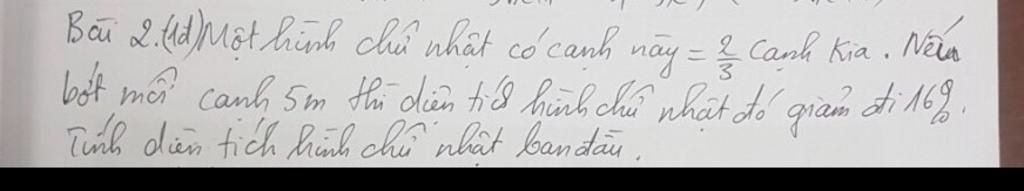 Bài 2. (1đ) Một hình chữ nhật có cạnh này = 2/3 cạnh kia. Nếu
bớt mỗi cạnh 5m thì diện tích hình chữ nhật đó giảm đi 16%.
Tính diện tích hình chữ nhật ban đầu.